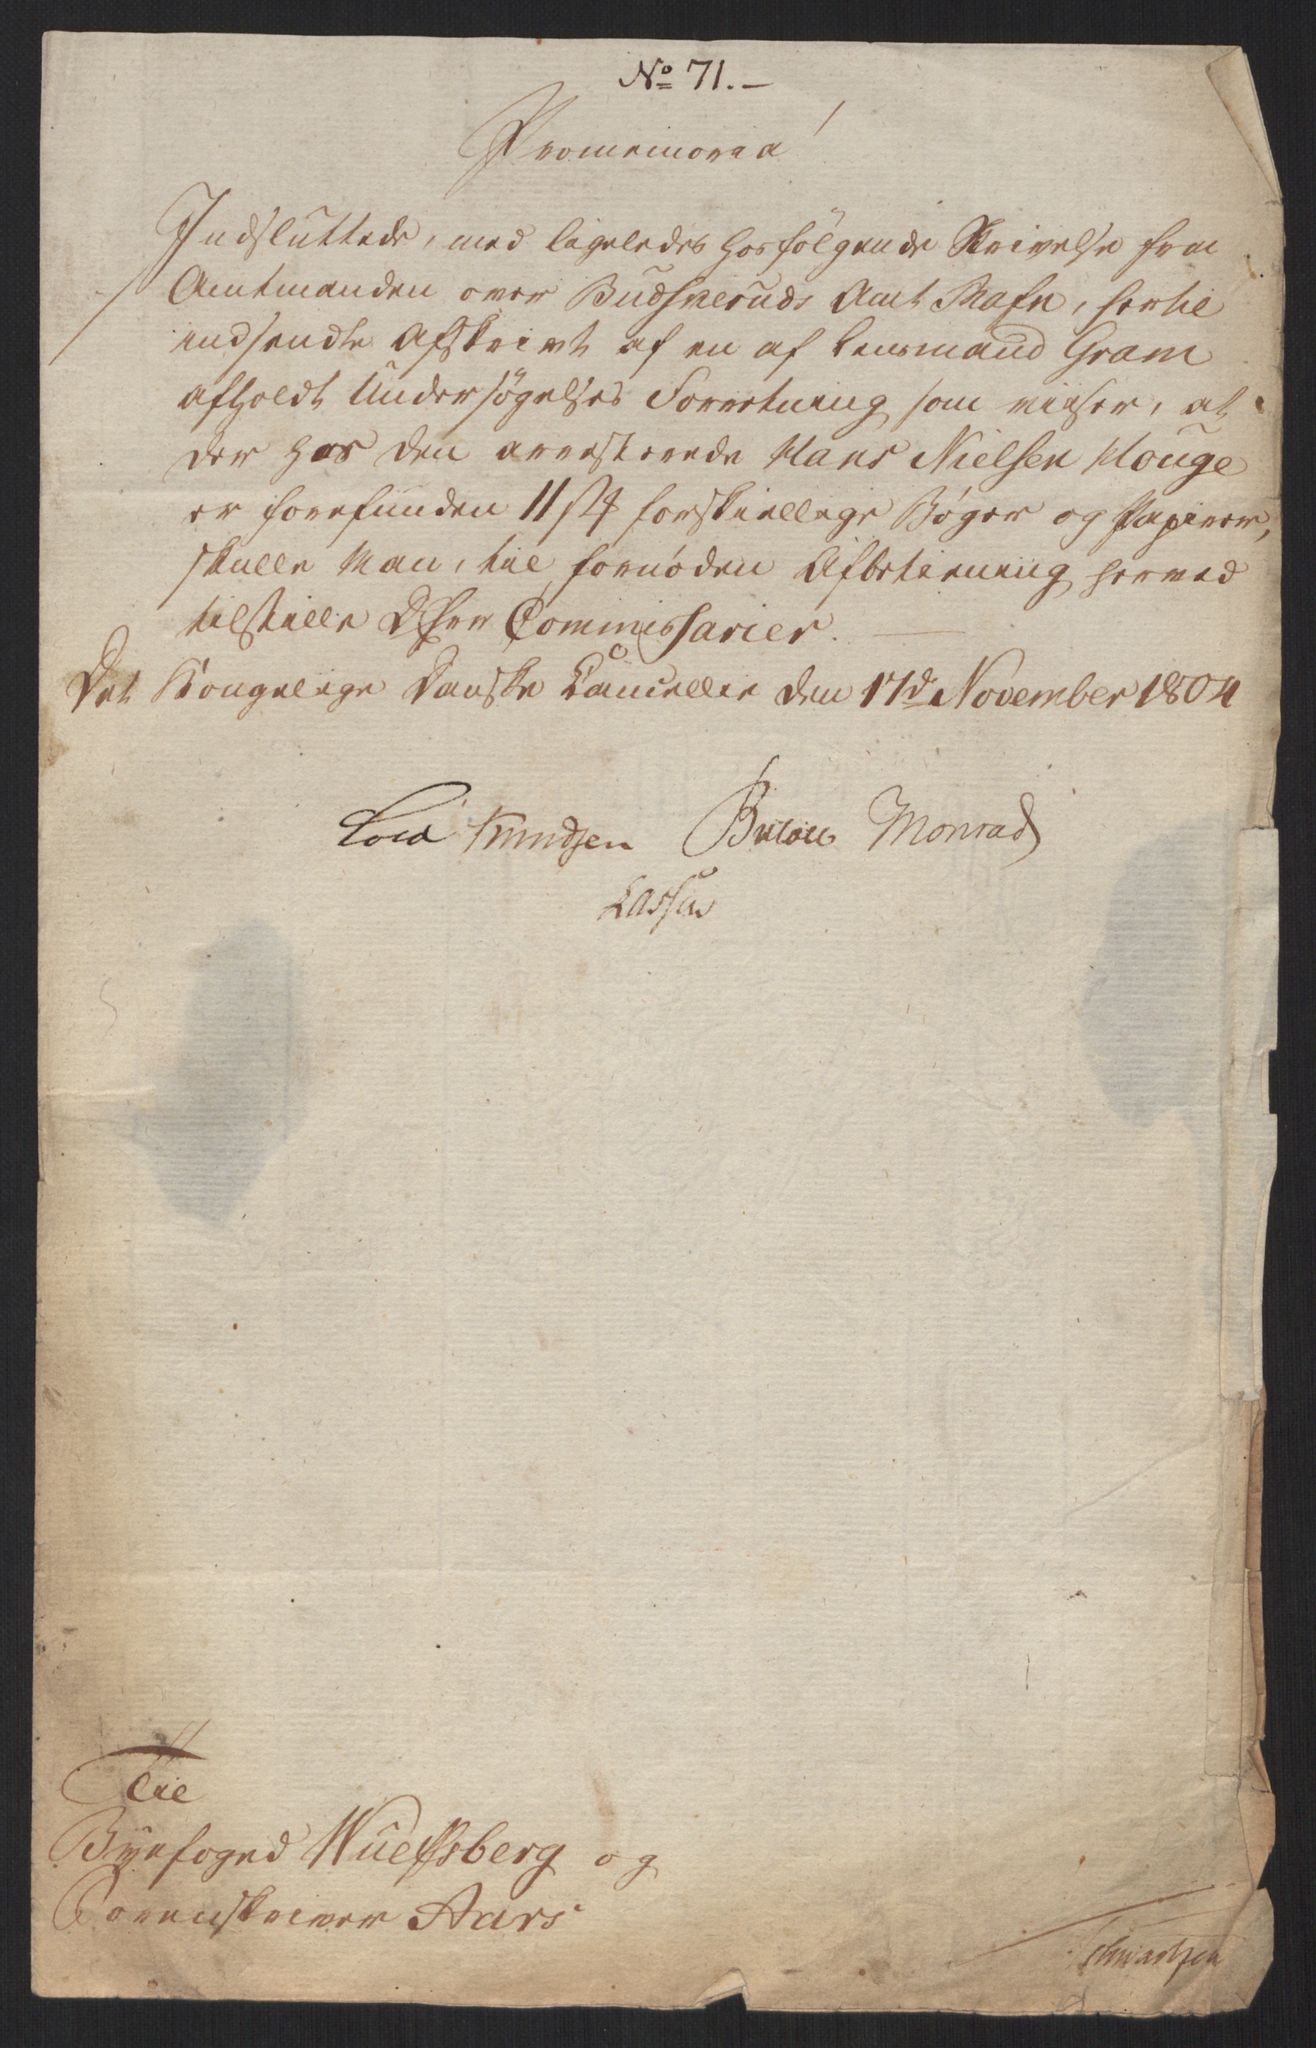 No 71.-
Promemoria
Indsluttede, med ligeledes hosfølgende Skrivelse fra
Amtmanden over Budskeruds Amt Rafn, hertil
indsendte Afskrivt af en af Lensmand Gram
afholdt Undersøgelses Forretning som viiser, at
der hos den arresterede Hans Nielsen Houge
er forefunden 11 st forskiellige Bøger og Papirer,
skulle Man, til fornøden Afbetiening herved
tilstille DHrr Commissarier.
Det Kongelige Danske Cancellie den 17d November 1804
Knudsen Bülow Monrad
Lassen
Til
Byefoged Wuelfsberg og
Sorenskriver Aars
Schwartzen